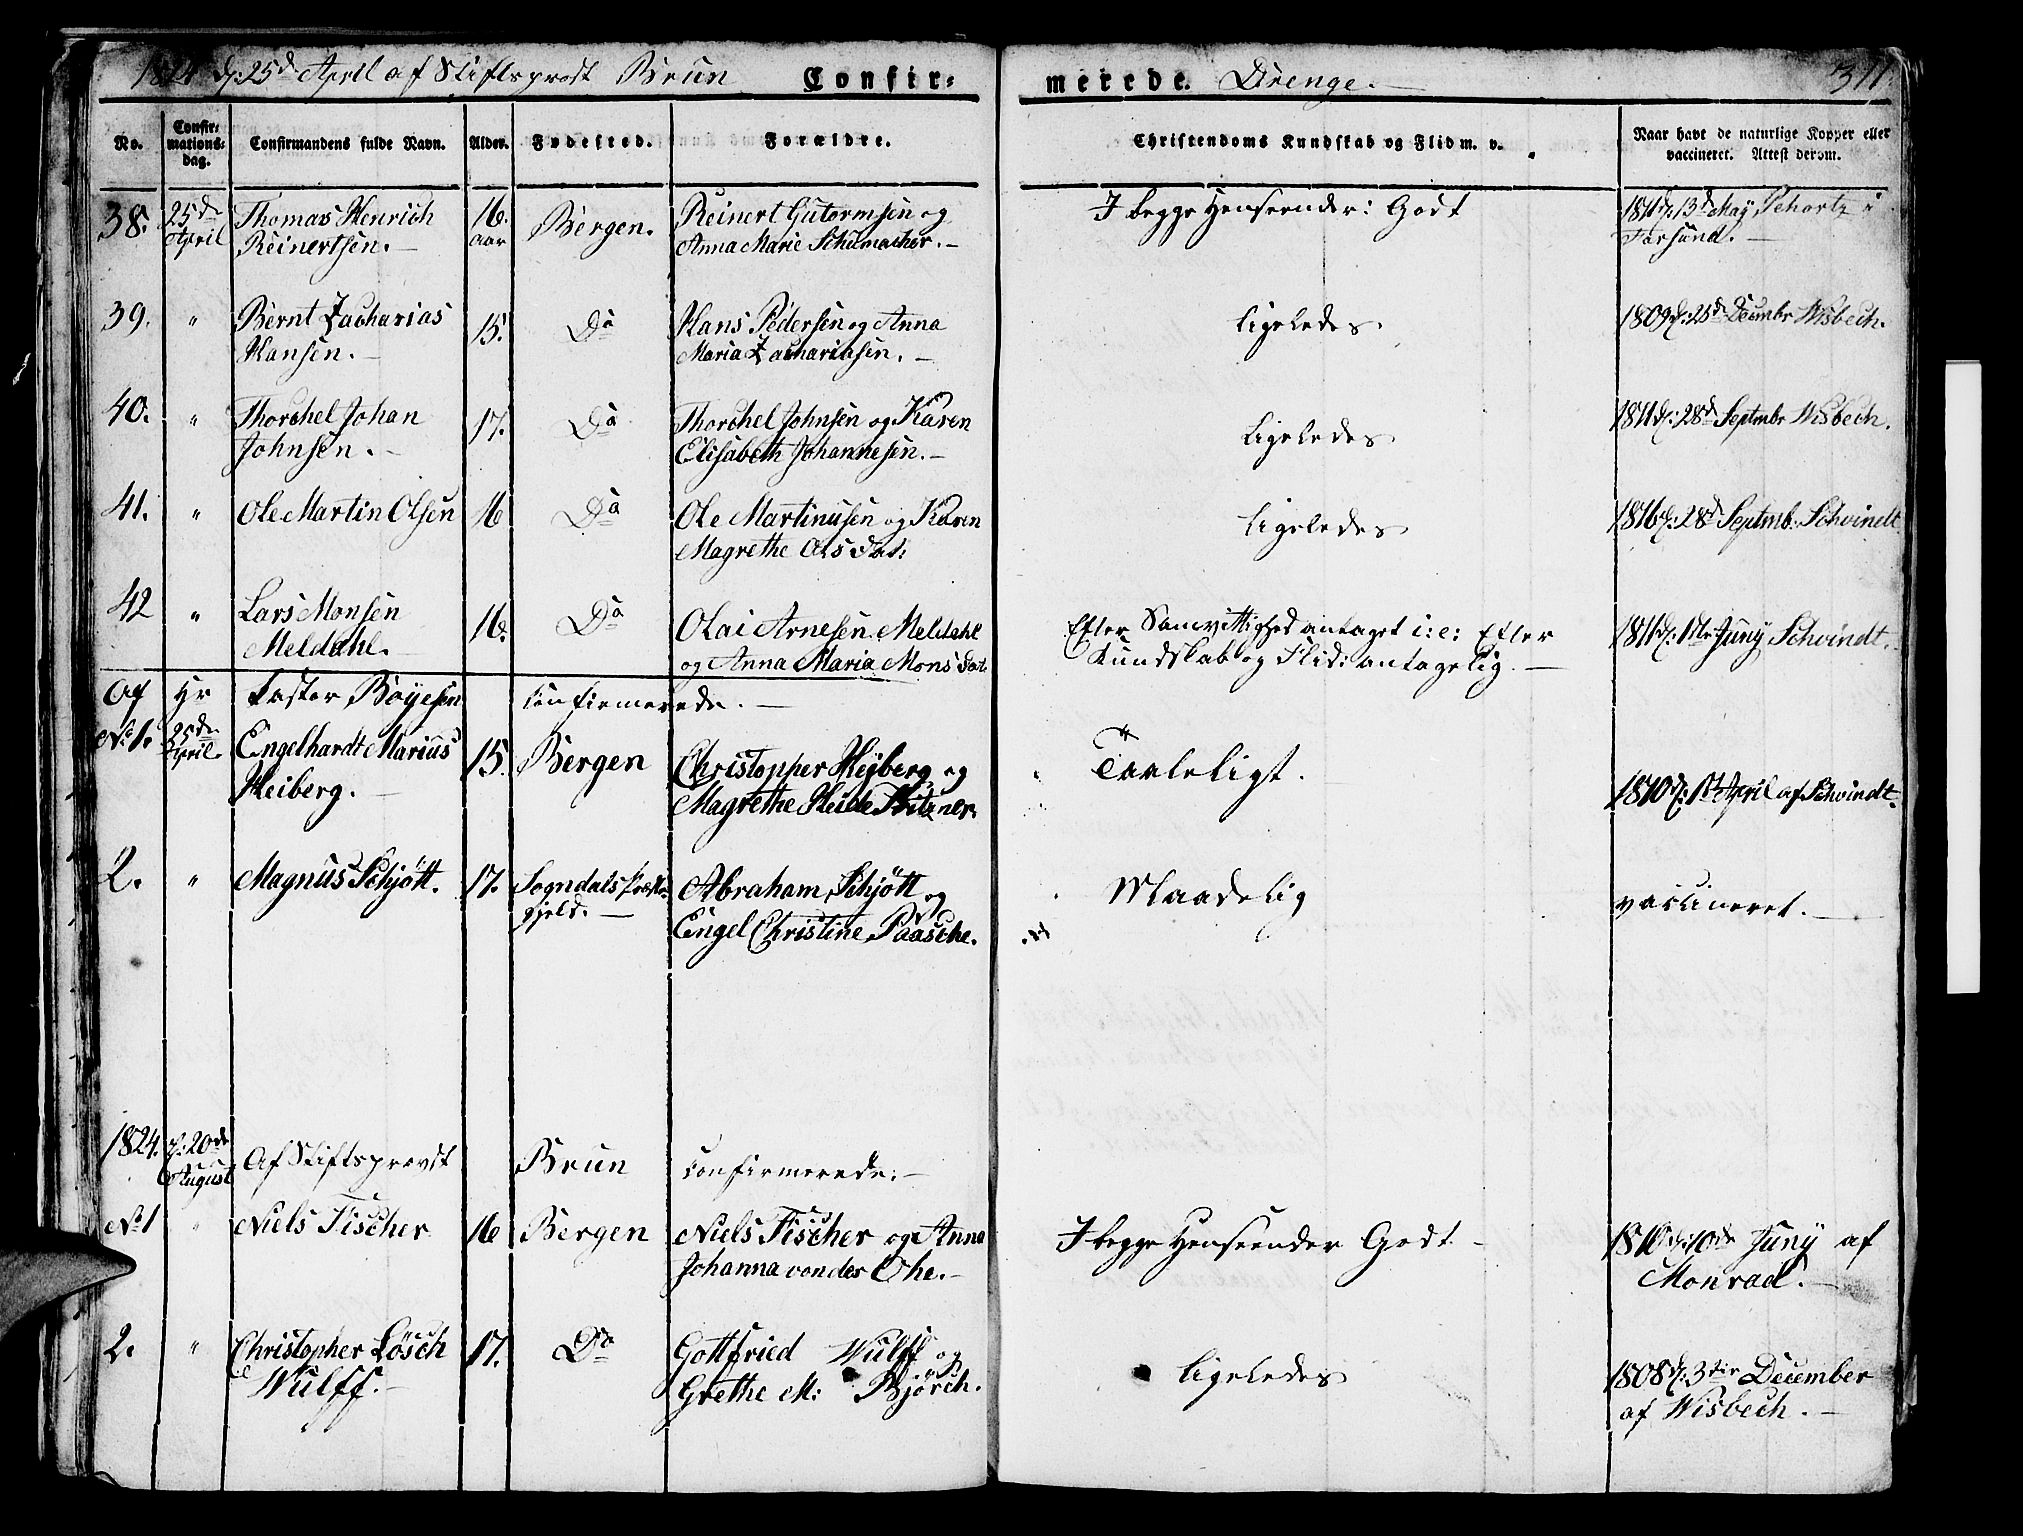 1824 d: 25d April af Stiftsprost Brun Confir-
merede. Drenge.
311.
No.
Confir-
mations-
dag.
Confirmandens fulde Navn.
Alder.
Fødested.
Forældre.
Christendoms Kundskab og Flid m. v.
Naar havt de naturlige Kopper eller
vaccineret. Attest derom.
38. 25de Thomas Henrich 16. Bergen. Reinert Gutormsen og I begge Henseender: Godt 1811 d: 13d May, Schartz i
April Reinertsen. aar Anna Marie Schumacher. Farsund.
39. " Bernt Zacharias 15. Do Hans Pedersen og Anna ligeledes. 1809 d: 25d Decembr Wisbech.
Hansen. Maria Zachariasen.
40. " Thorchel Johan 17. Do Thorchel Johnsen og Karen ligeledes 1811 d: 28d Septmbr Wisbech.
Johnsen. Elisabeth Johannesen.
41. " Ole Martin Olsen 16 Do Ole Martinusen og Karen ligeledes 1816 d: 28d Septmb. Schvindt
Magrethe Ols Dat:
42 " Lars Monsen 16. Do Olai Arnesen Meldahl Efter Samvittighed antaget i: e: Efter 1811 d: 11te Juny Schvindt.
Meldahl. og Anna Maria Mons Dat. Kundskab og Flid: antagelig.
Af Hr Pastor Boyesen confirmerede.
No 1. 25de Engelhardt Marius 15. Bergen Christopher Heiberg og Taaleligt.
April Heiberg. Magrethe Heide Fritzner. 1810 d: 1st April af Schvindt.
2. " Magnus Schjøtt. 17. Sogndals Præste Abraham Schjøtt og Maadelig vaccineret.
gjeld. Engel Christine Paasche.
1824. d: 20de Af Stiftsprovst Brun confirmerede:
August
No 1 " Niels Fischer 16 Bergen Niels Fischer og Anna I begge Henseender Godt 1810 d: 10de Juny af
Johanna von der Ohe. Monrad.
2. " Christopher Løsch 17. Do Gottfried Wulff og ligeledes 1808 d: 3die December
Wulff. Grethe M: Bjørch. af Wisbech.